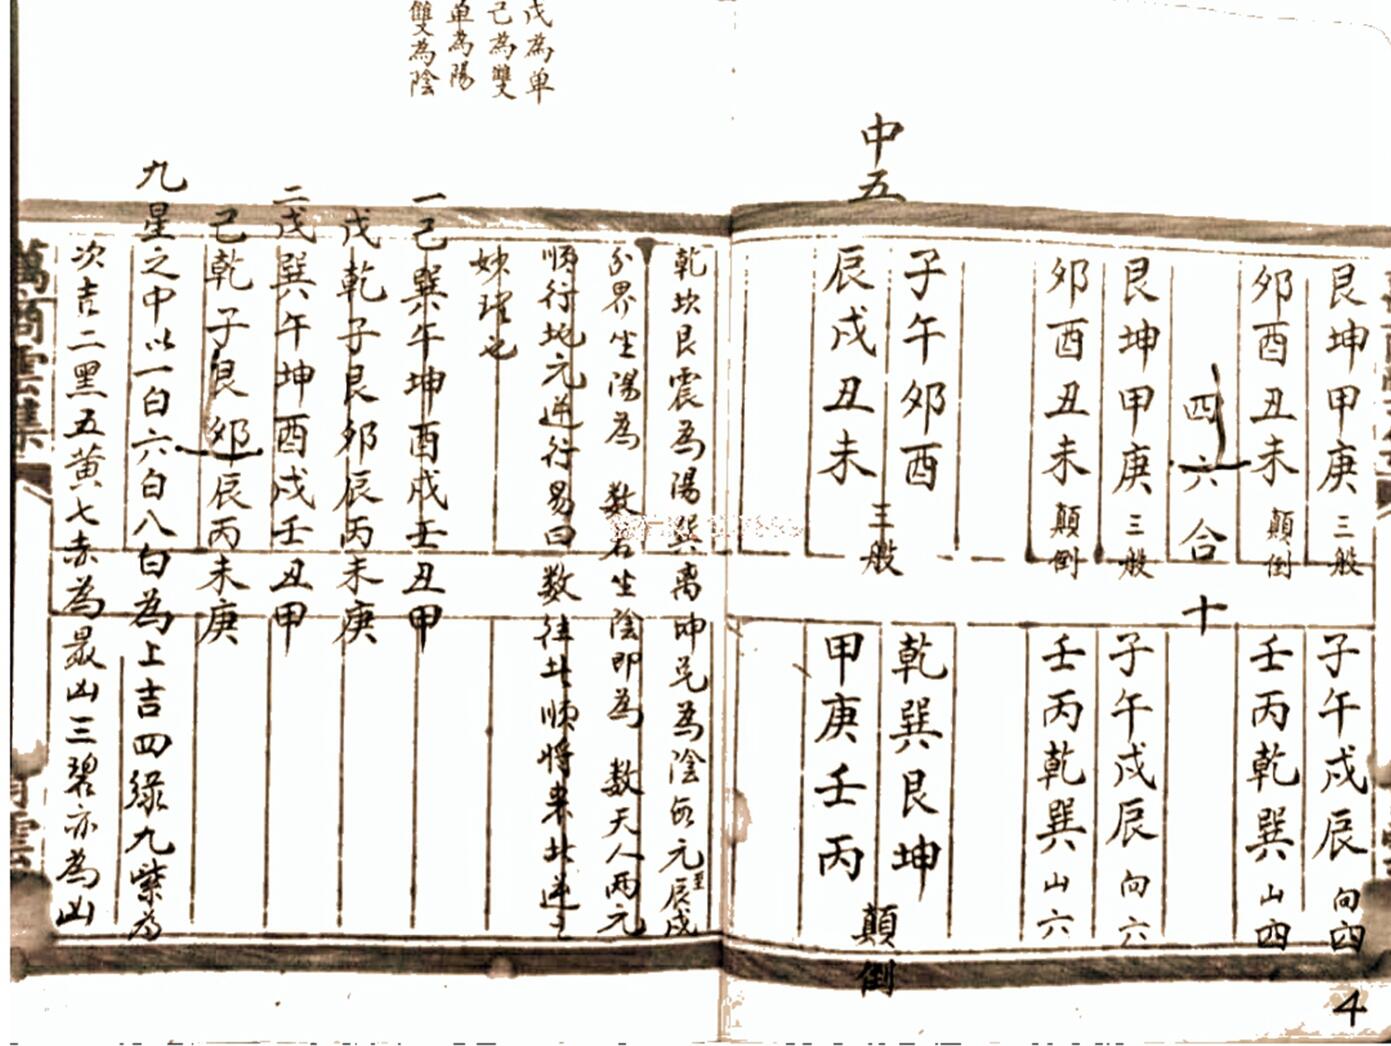 艮坤甲庚 三般
夘酉丑未 顛倒
四六合十
艮坤甲庚 三般
夘酉丑未 顛倒
子午戌辰 向四
壬丙乾巽 山四
子午戌辰 向六
壬丙乾巽 山六
中五
子午夘酉
辰戌丑未
三般
乾巽艮坤
甲庚壬丙
顛倒
4
戊為单
己為雙
单為陽
雙為陰
乾坎艮震為陽巽离坤兌為陰 元 辰戌
界坐陽為 数 坐陰即為 数天人两元
順行地元逆行易曰 数往 順将来 逆
妙 也
一己巽午坤酉戌壬丑甲
戊乾子艮夘辰丙未庚
二戊巽午坤酉戌壬丑甲
己乾子艮夘辰丙未庚
九星之中以一白六白八白為上吉四綠九紫為
次吉二黑五黄七赤為最凶三碧亦為凶
萬商雲集